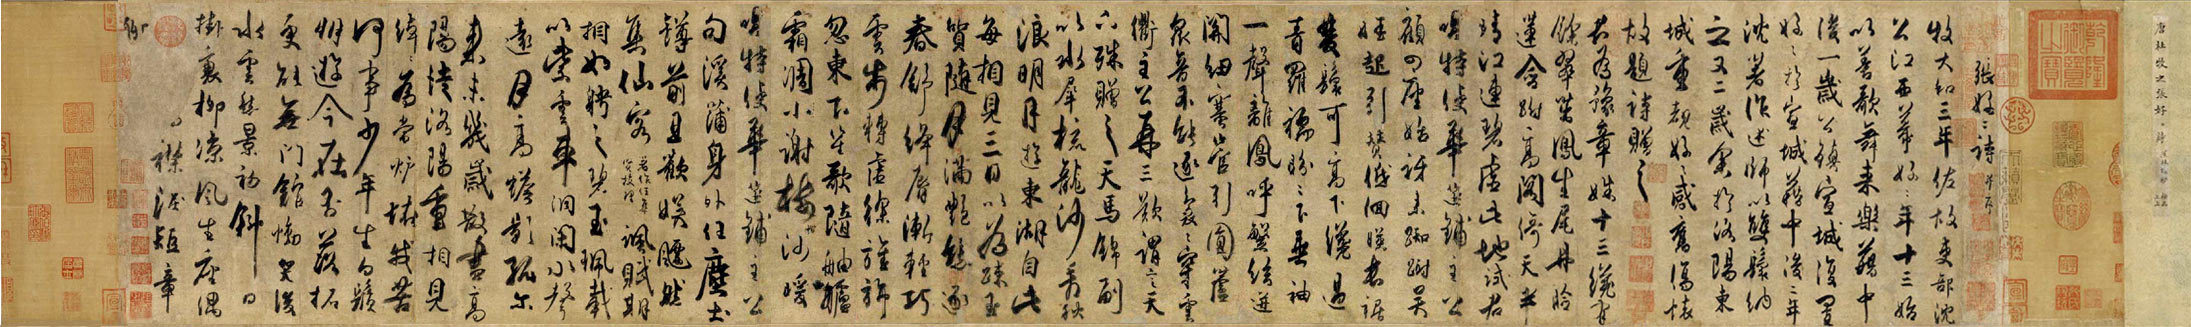 唐杜牧之張好好詩
張好好詩 并序
牧大和三年佐故吏部沈
公江西幕好好年十三始
以善歌舞來樂藉中
後一歲公鎮宣城復置
好好於宣城藉中後二年
沈著作述師以雙鬟納
之又二歲余於洛陽東
城重覩好好感舊傷懷
故題詩贈之
君為豫章姝十三纔有
餘翠茁鳳生尾丹臉
蓮含跗高閣倚天半
晴江連碧虛此地試君
唱特使華筵鋪主公
顧四座始訝來踟躕吳
娃起引贊低佪暎長裾
雙鬟可高下纔過
青羅襦盼盼下垂袖
一聲離鳳呼繁弦迸
關細塞管引圓蘆
衆音不能逐裊裊穿雲
衢主公再三歎謂言天
下殊贈之天馬錦副
以水犀梳龍沙看秋
浪明月遊東湖自此
每相見三日以為疎玉
質隨月滿艷態逐
春舒絳脣漸輕巧
雲步轉虛徐旌旆
忽東下笙歌隨舳艫
霜凋小謝樹沙暖
唱特使華筵鋪主公
句溪蒲身外任塵土
罇前且歡娛飄然
集仙客 著作任集賢校理 諷賦期
相如聘之碧玉珮載
以紫雲車洞閉水聲
遠月高蟾影孤尔
來未幾歲散盡高
陽徒洛陽重相見
綽綽為當爐怪我苦
何事少年生白鬚
朋遊今在否落拓
更能無門館慟哭後
水雲愁景初斜日
掛衰柳涼風生座隅
襟淚短章
聊